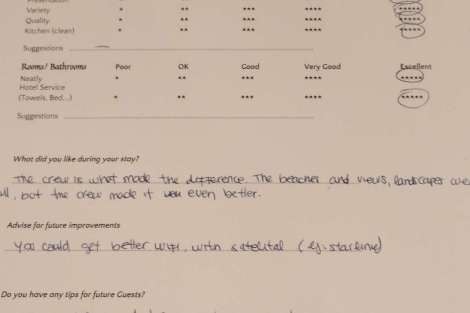 Variety * ** *** **** *****
Quality * ** *** **** *****
Kitchen (clean) * ** *** **** *****
Suggestions
Rooms/ Bathrooms Poor OK Good Very Good Excellent
Neatly * ** *** **** *****
Hotel Service
(Towels, Bed...) * ** *** **** *****
Suggestions
What did you like during your stay?
The crew is what made the difference. The beaches and views, landscapes
, but the crew made it even better.
Advise for future improvements
You could get better wifi, with satelital (ej. starlink)
Do you have any tips for future Guests?